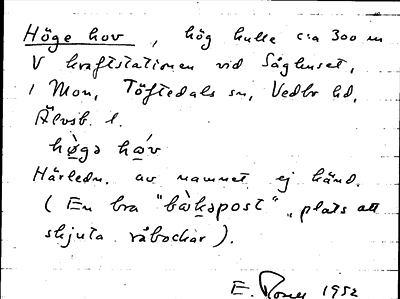 Höge hov, hög kulle c:a 300 m
V kraftstationen vid Såghuset,
i Mon, Töftedals sn, Vedbo hd,
Älvsb. l.
hø̀gə hɷ́v
Härledn. av namnet ej känd.
(En bra "bɷ̀kəpost", plats att
skjuta råbockar).
E. 1952